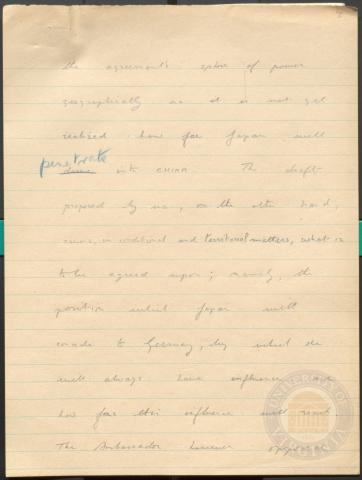 the agreement's sphere of power
geographically as it is not yet
realized how far Japan will
penetrate
drive into CHINA. The draft
prepared by us, on the other hand,
in conditional and territorial matters, what is
to be agreed upon; namely, the
position which Japan will
concede to Germany, by which she
will always have influence and
how far this influence will reach.
The Ambassador however
UNIVERSITY OF VIRGINIA